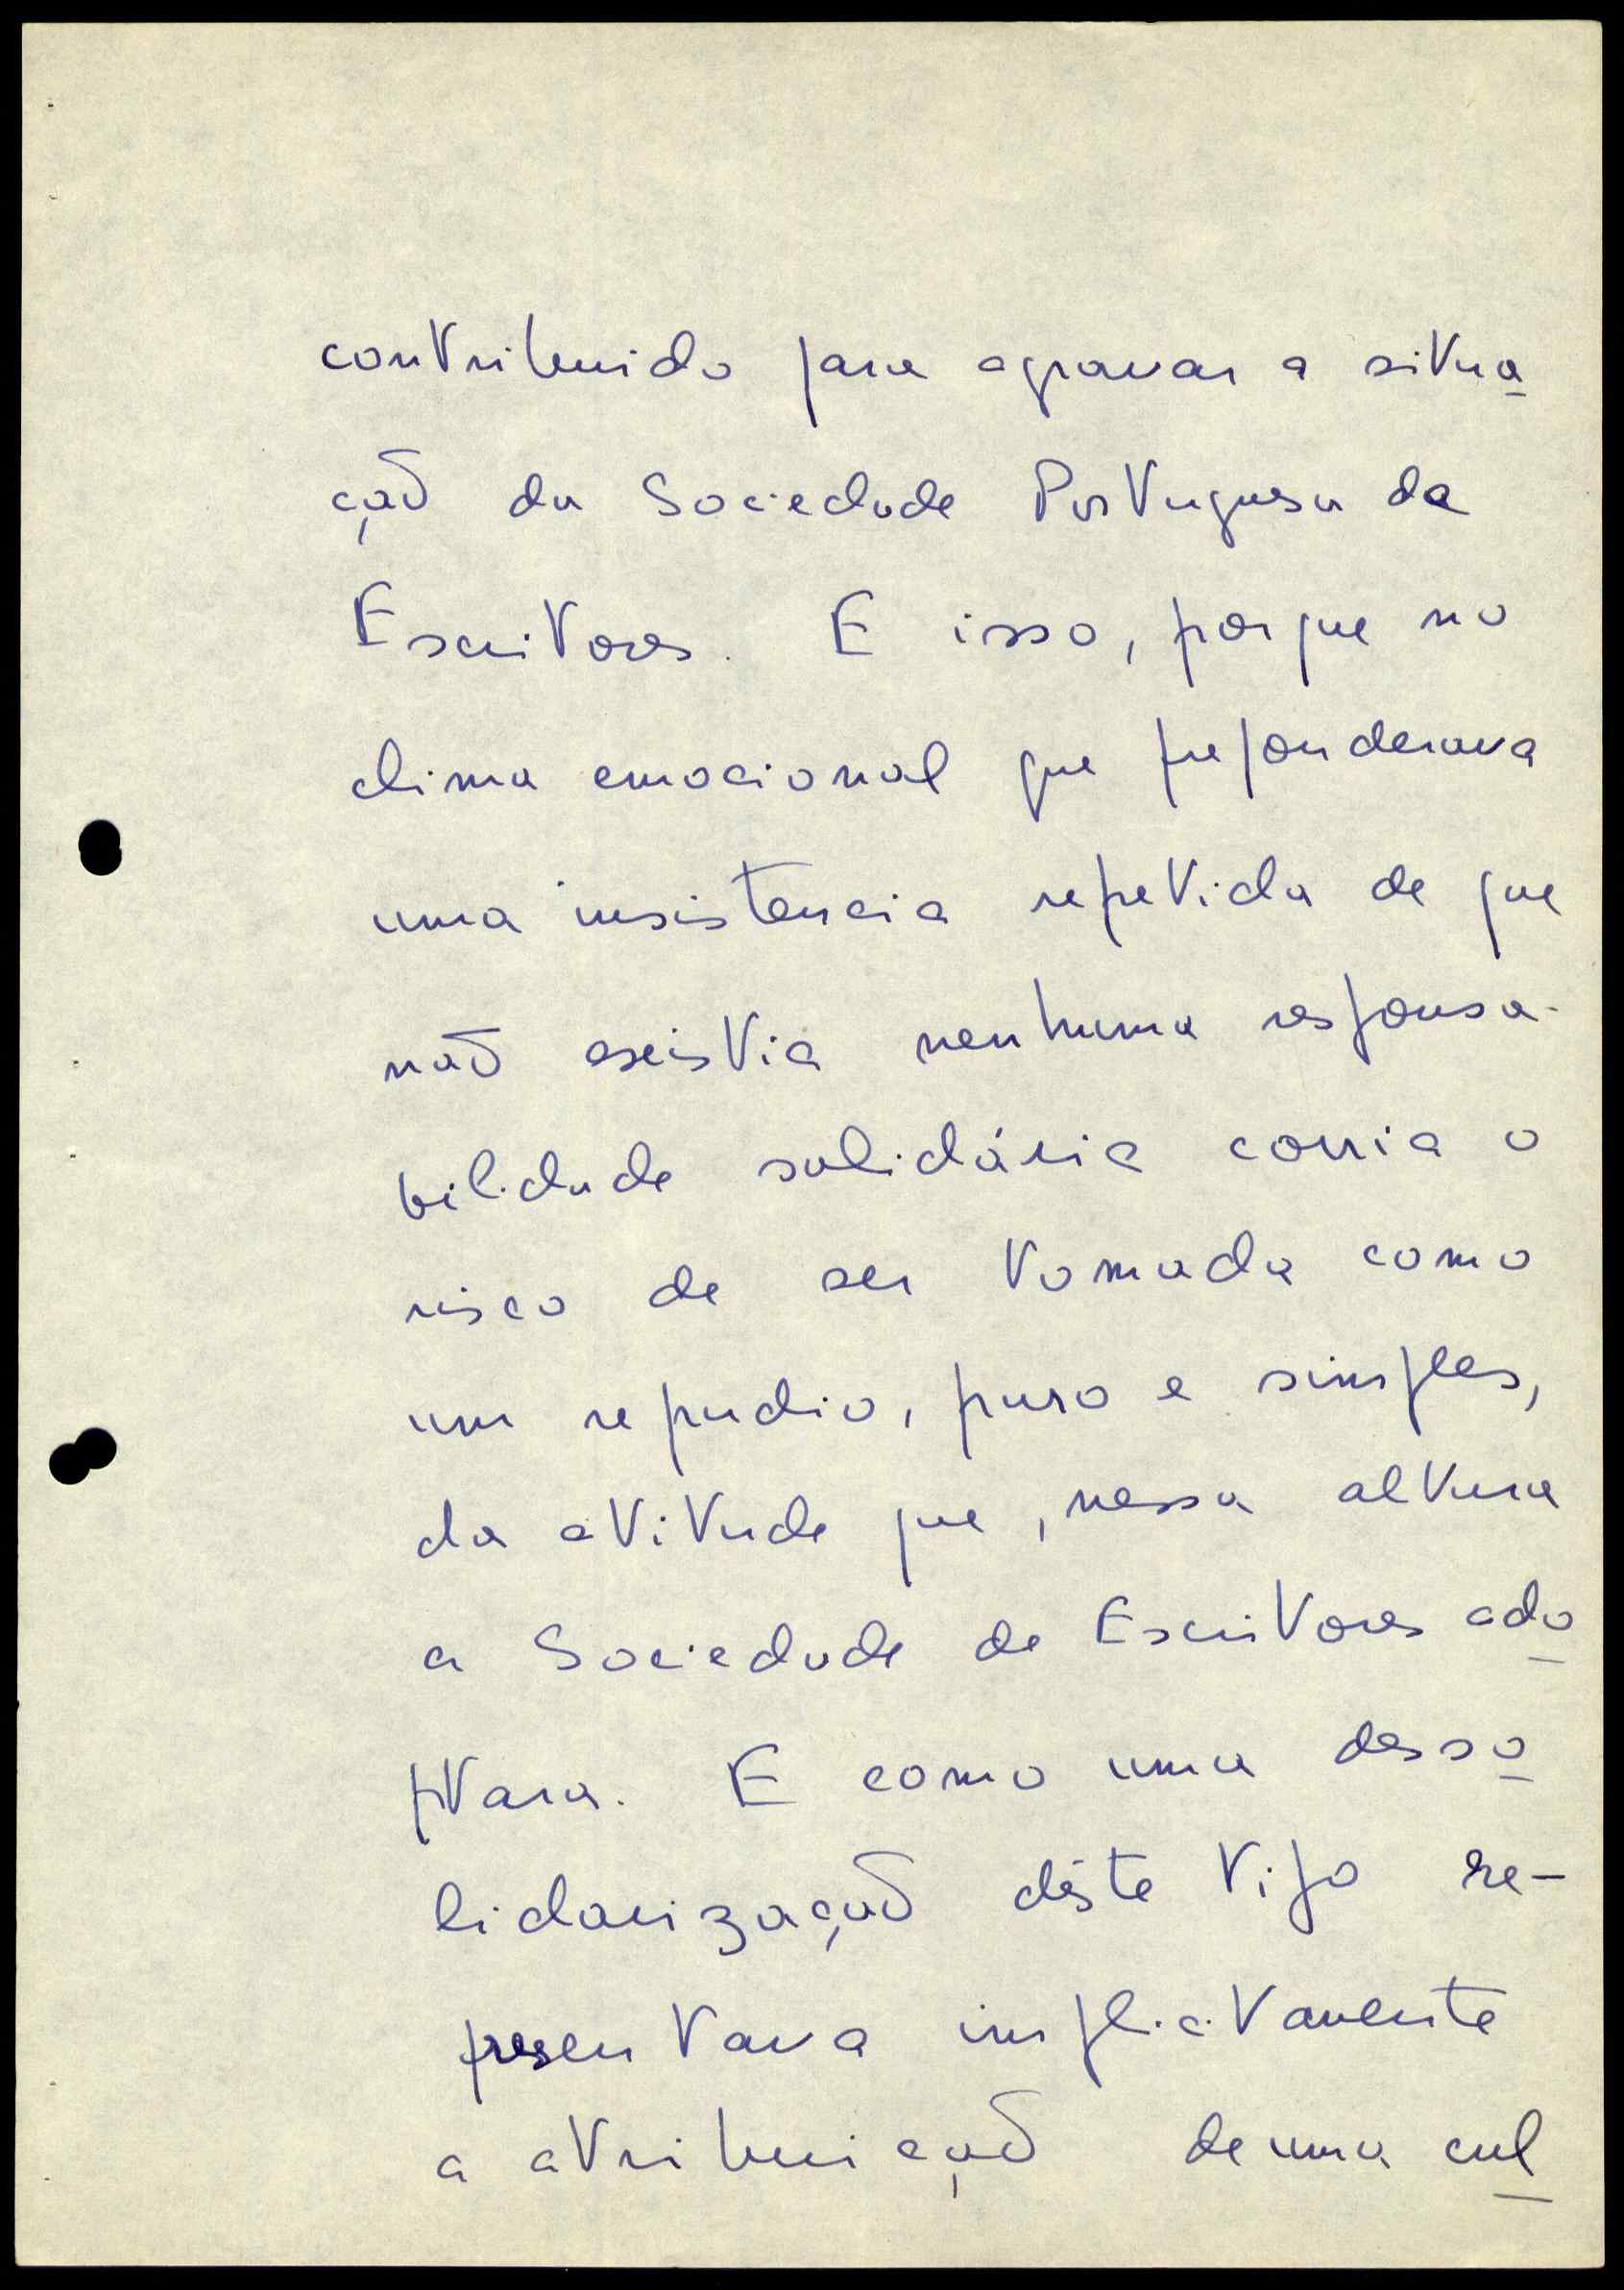 contribuido para agravar a situa
ção da Sociedade Portuguesa de
Escritores. E isso, porque no
clima emocional que preponderava
uma insistencia repetida de que
não existia nenhuma responsa-
bilidade solidária corria o
risco de ser tomada como
um repudio, puro e simples,
da atitude que, nessa altura
a Sociedade de Escritores ado
ptara. E como uma desso
lidarização dêste tipo re-
presentava implicitamente
a atribuição de uma cul